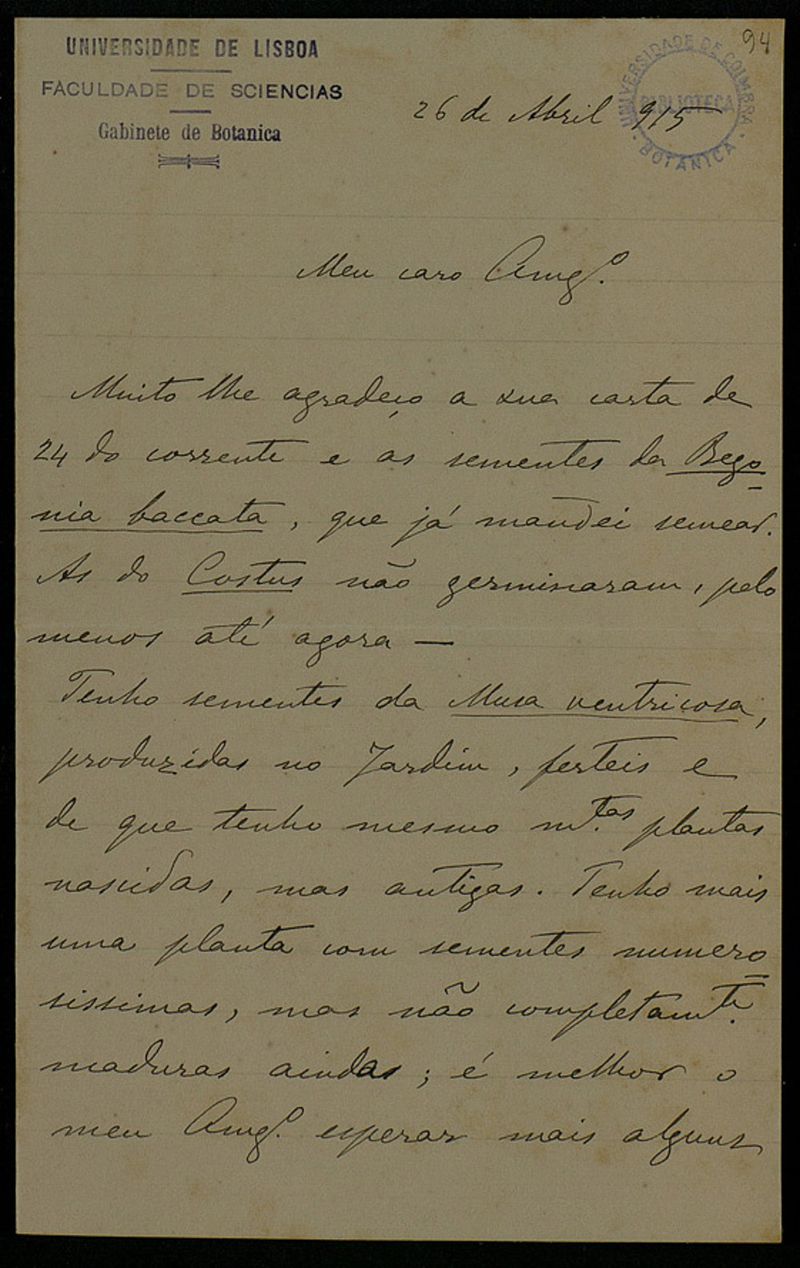 94
UNIVERSIDADE DE LISBOA
FACULDADE DE SCIENCIAS
Gabinete de Botanica
UNIVERSIDADE DE COIMBRA
BIBLIOTECA
BOTANICA
26 de Abril 915
Meu caro Amgº.
Muito lhe agradeço a sua carta de
24 do corrente e as sementes da Bego-
nia baccata, que já mandei semear.
As do Costus não germinaram, pelo
menos até agora —
Tenho sementes da Musa ventricosa,
produzidas no Jardim, ferteis e
de que tenho mesmo m.tas plantas
nascidas, mas antigas. Tenho mais
uma planta com sementes numero=
sissimas, mas não completamte.
maduras aindas; é melhor o
meu Amgº. esperar mais alguns